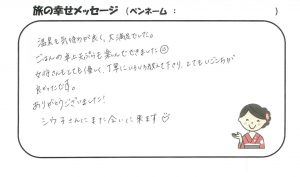 旅の幸せメッセージ（ペンネーム：　　　）
温泉も気持ちが良く、大満足でした。
ごはんの卓上天ぷらも楽しくできました
女将さんもとても優しく、丁寧にいろいろ教えて下さり、とてもいごこちが
良かったです。
ありがとうございました！
シウ子さんにまた会いに来ます